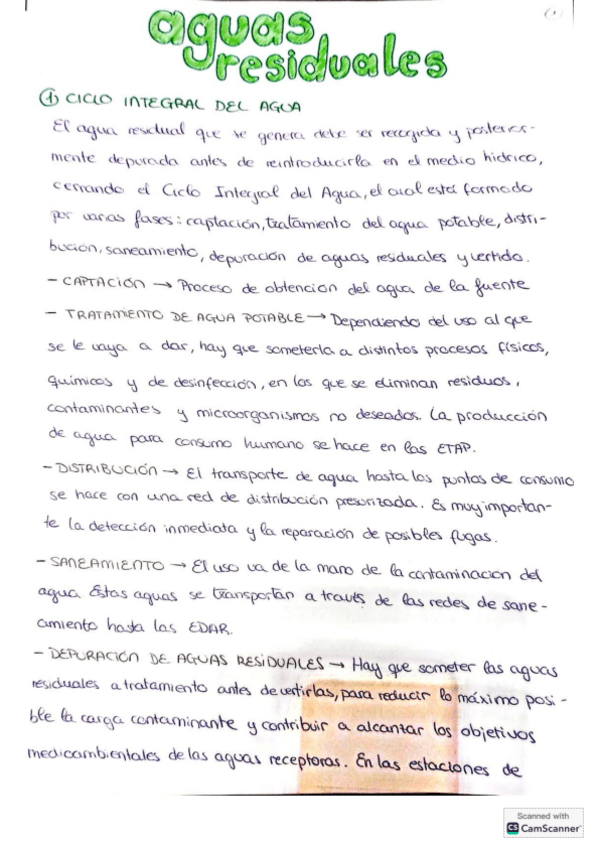 aguas
residuales
① CICLO INTEGRAL DEL AGUA
El agua residual que se genera debe ser recogida y posterior-
mente depurada antes de reintroducirla en el medio hídrico,
cerrando el Ciclo Integral del Agua, el cual está formado
por varias fases: captación, tratamiento del agua potable, distri-
bución, saneamiento, depuración de aguas residuales y vertido.
- CAPTACIÓN → Proceso de obtención del agua de la fuente
- TRATAMIENTO DE AGUA POTABLE → Dependiendo del uso al que
se le vaya a dar, hay que someterla a distintos procesos físicos,
químicos y de desinfección, en los que se eliminan residuos,
contaminantes y microorganismos no deseados. La producción
de agua para consumo humano se hace en las ETAP.
- DISTRIBUCIÓN → El transporte de agua hasta los puntos de consumo
se hace con una red de distribución presurizada. Es muy importan-
te la detección inmediata y la reparación de posibles fugas.
- SANEAMIENTO → El uso va de la mano de la contaminación del
agua Estas aguas se transportan a través de las redes de sane-
amiento hasta las EDAR.
- DEPURACIÓN DE AGUAS RESIDUALES → Hay que someter las aguas
residuales a tratamiento antes de vertirlas, para reducir lo máximo posi-
ble la carga contaminante y contribuir a alcanzar los objetivos
medioambientales de las aguas receptoras. En las estaciones de
Scanned with
CS CamScanner